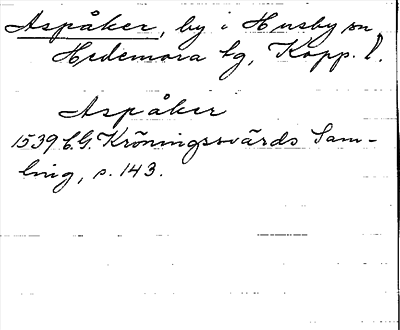 Aspåker, by i Husby sn,
Hedemora tg, Kopp. l.
Aspåker
1539 C.G. Kröningsvärds Sam-
ling, s. 143.